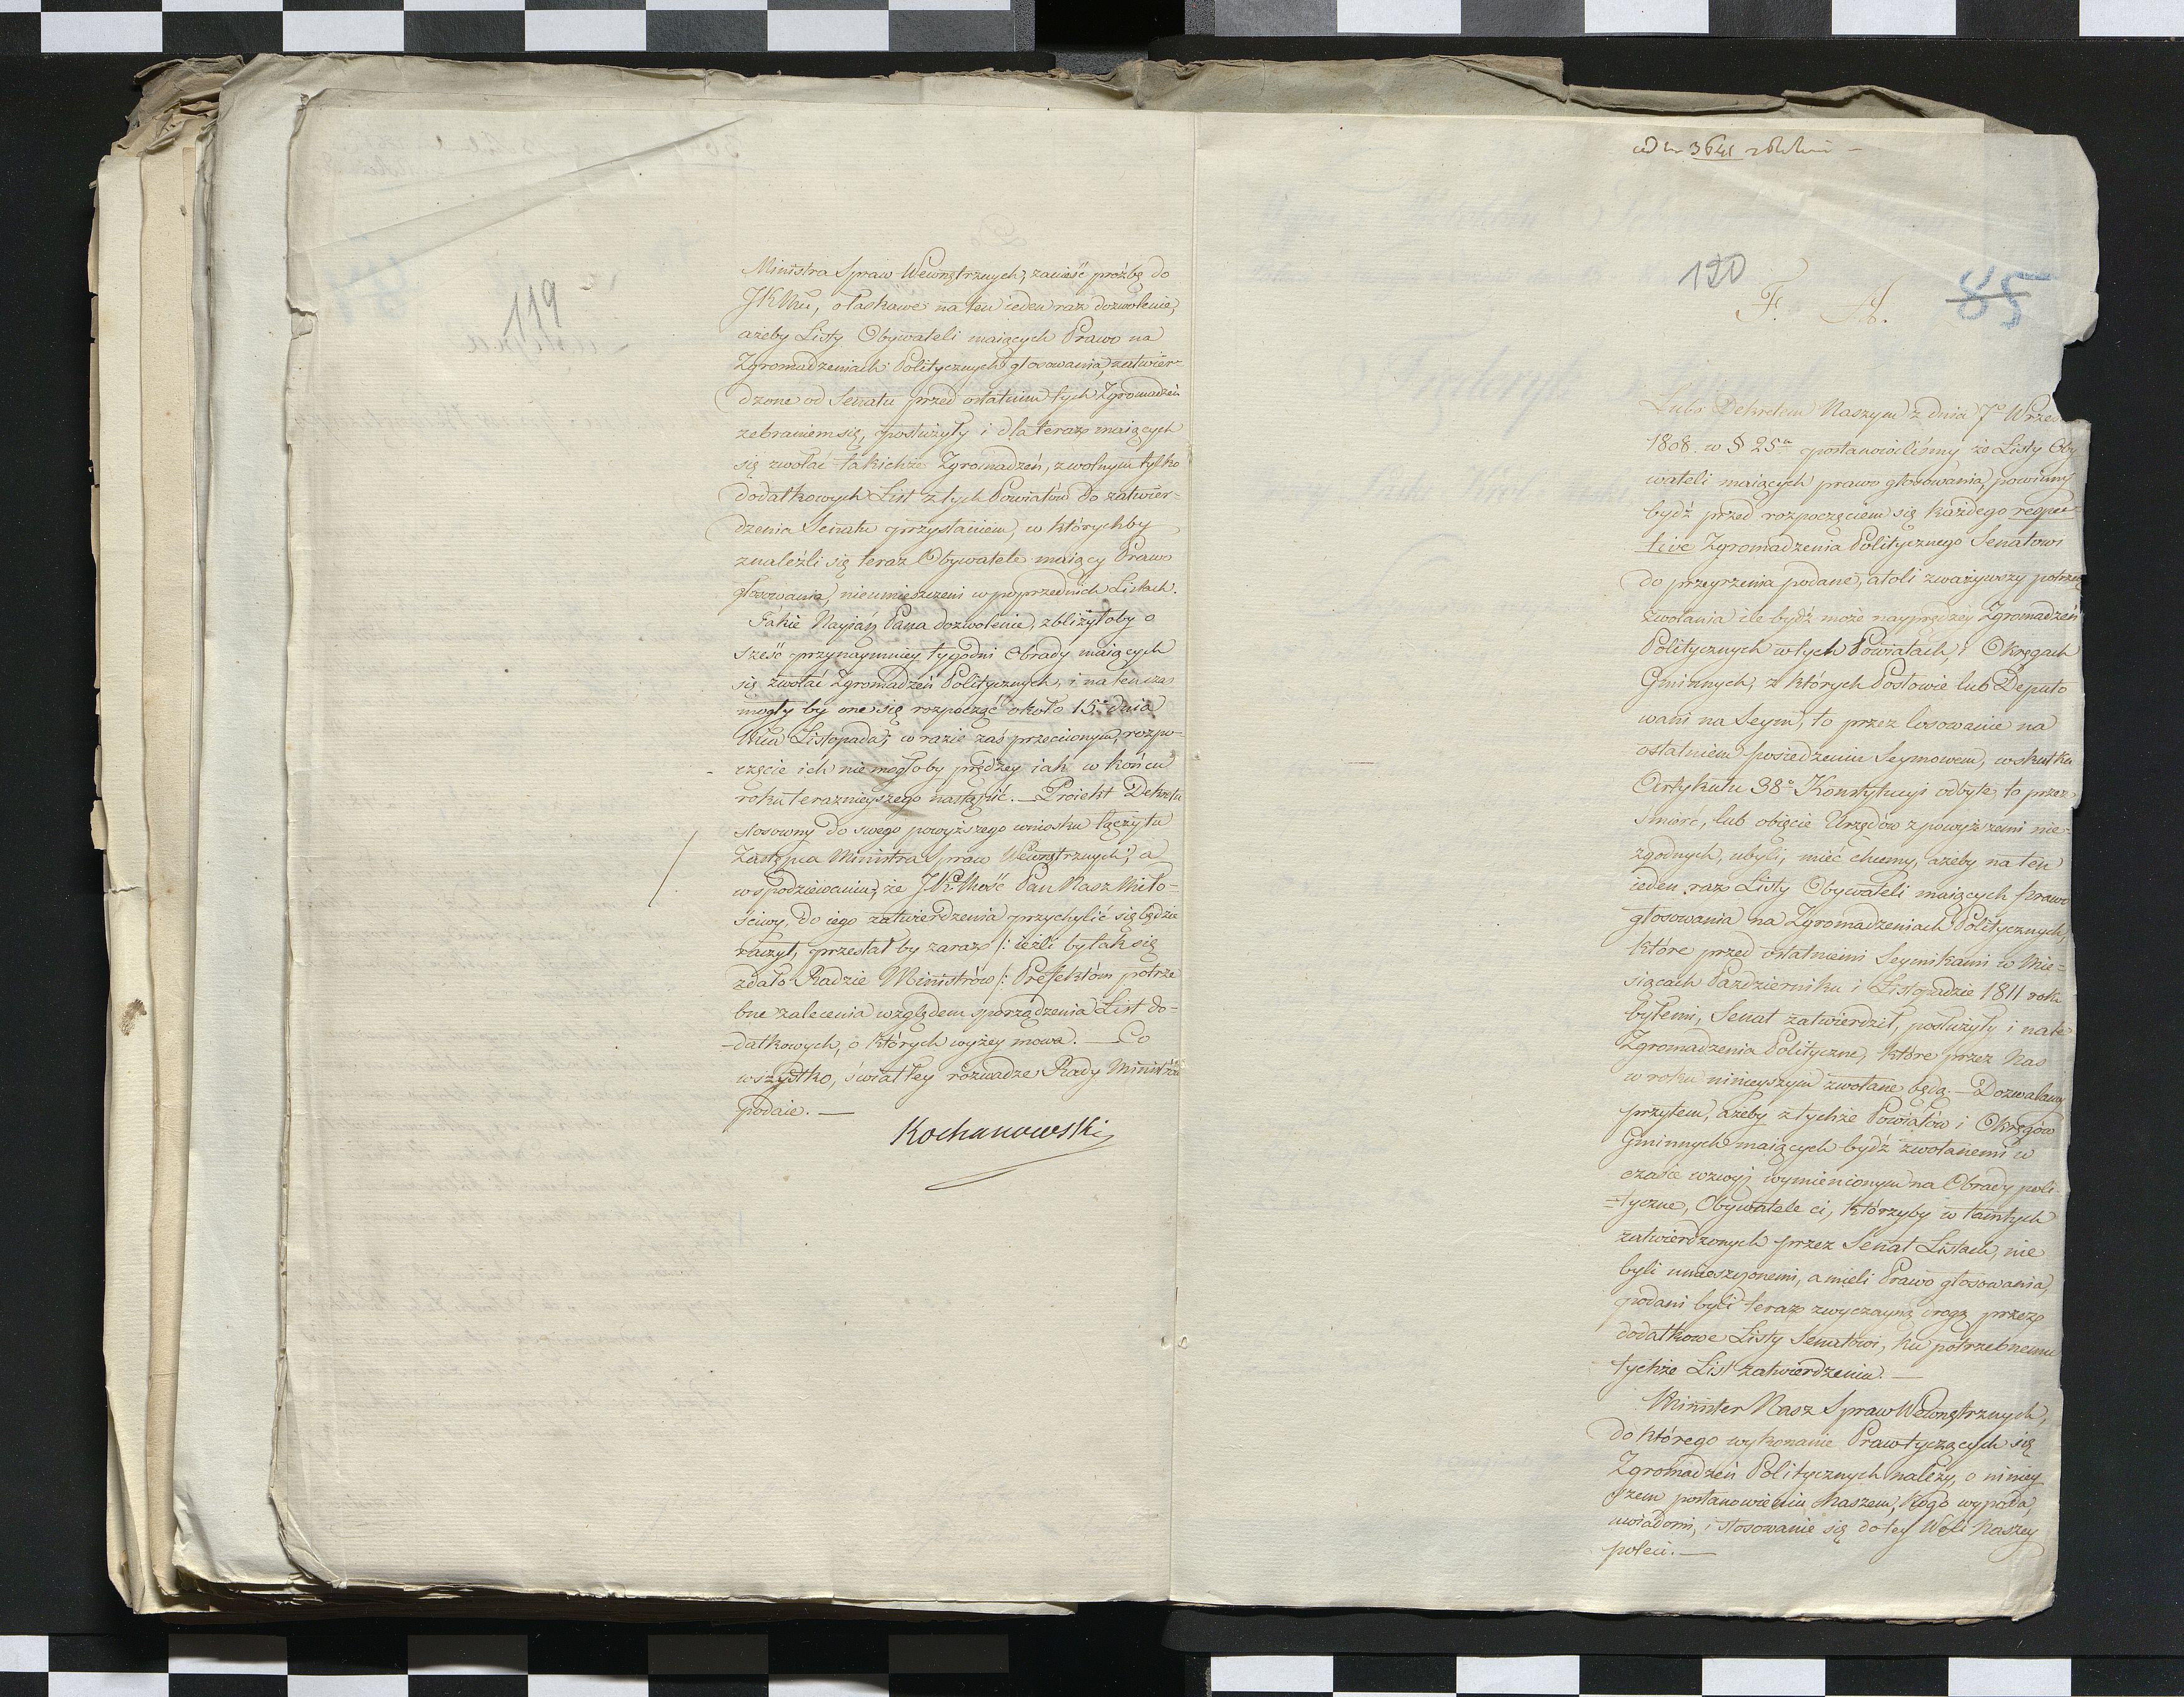 119
Ministra Spraw Wewnętrznych, zanieść proźbę do
JKMci, o łaskawe na ten ieden raz dozwolenie,
ażeby Listy Obywateli maiących Prawo na
Zgromadzeniach Politycznych głosowania, zatwier-
dzone od Senatu przed ostatnim tych Zgromadzeń
zebraniem się, posłużyły i dla teraz maiących
się zwołać takichże Zgromadzeń, z wolnym tylko
dodatkowych List z tych Powiatów do zatwier=
dzenia Senatu przysłaniem, w którychby
znaleźli się teraz Obywatele maiący Prawo
głosowania, nieumieszczeni w poprzednich Listach.
Takie Nayiaś: Pana dozwolenie, zbliżyłoby o
sześć przynaymniey tygodni Obrady maiących
się zwołać Zgromadzeń Politycznych, i na ten czas
mogły by one się rozpocząć około 15. dnia
Mca Listopada; w razie zaś przeciwnym, rozpo-
częcie ich nie mogłoby prędzey iak w końcu
roku teraznieyszego nastąpić. — Proiekt Dekretu
stosowny do swego powyższego wniosku łączy tu
Zastępca Ministra Spraw Wewnętrznych, a
w spodziewaniu, że JKMość Pan Nasz Miło=
ściwy, do iego zatwierdzenia przychylić się będzie
raczył, przesłał by zaraz /: ieżli by tak się
zdało Radzie Ministrów :/ Prefektom potrze
bne zalecenia względem sporządzenia List do=
=datkowych, o których wyżey mowa. — Co
wszystko, światłey rozwadze Rady Ministrów
podaie. —
Kochanowski
3641
120
F. A.
85
Lubo Dekretem Naszym z dnia 7º Wrześ
1808. w § 25m postanowiliśmy że Listy Oby
wateli maiących prawo głosowania, powinny
bydź przed rozpoczęciem się każdego respec-
tive Zgromadzenia Politycznego Senatowi
do przeyrzenia podane, atoli zważywszy potrzebę
zwołania ile bydź może nayprędzey Zgromadzeń
Politycznych w tych Powiatach, i Okręgach
Gminnych, z których Posłowie lub Deputo
wani na Seym, to przez losowanie na
ostatniem posiedzeniu Seymowem, w skutku
Artykułu 38º Konstytucyi odbyte, to przez
śmierć, lub obięcie Urzędów z powyższemi nie-
zgodnych, ubyli, mieć chcemy, ażeby na ten
ieden raz Listy Obywateli maiących prawo
głosowania na Zgromadzeniach Politycznych,
które przed ostatniemi Seymikami w Mie=
siącach Październiku i Listopadzie 1811 roku
byłemi, Senat zatwierdził, posłużyły i na te
Zgromadzenia Polityczne, które przez Nas
w roku ninieyszym zwołane będą. — Dozwalamy
przytem, ażeby z tychże Powiatów i Okręgów
Gminnych maiących bydź zwołanemi w
czasie wzwyż wymienionym na Obrady poli-
=tyczne, Obywatele ci, którzyby w tamtych
zatwierdzonych przez Senat Listach, nie
byli umieszczonemi, a mieli Prawo głosowania,
podani byli teraz zwyczayną drogą przez
dodatkowe Listy Senatowi, ku potrzebnemu
tychże List zatwierdzeniu. —
Minister Nasz Spraw Wewnętrznych,
do którego wykonanie Praw tyczących się
Zgromadzeń Politycznych należy, o niniey
szem postanowieniu Naszem, kogo wypada,
uwiadomi, i stosowanie się do tey Woli Naszey
poleci. —